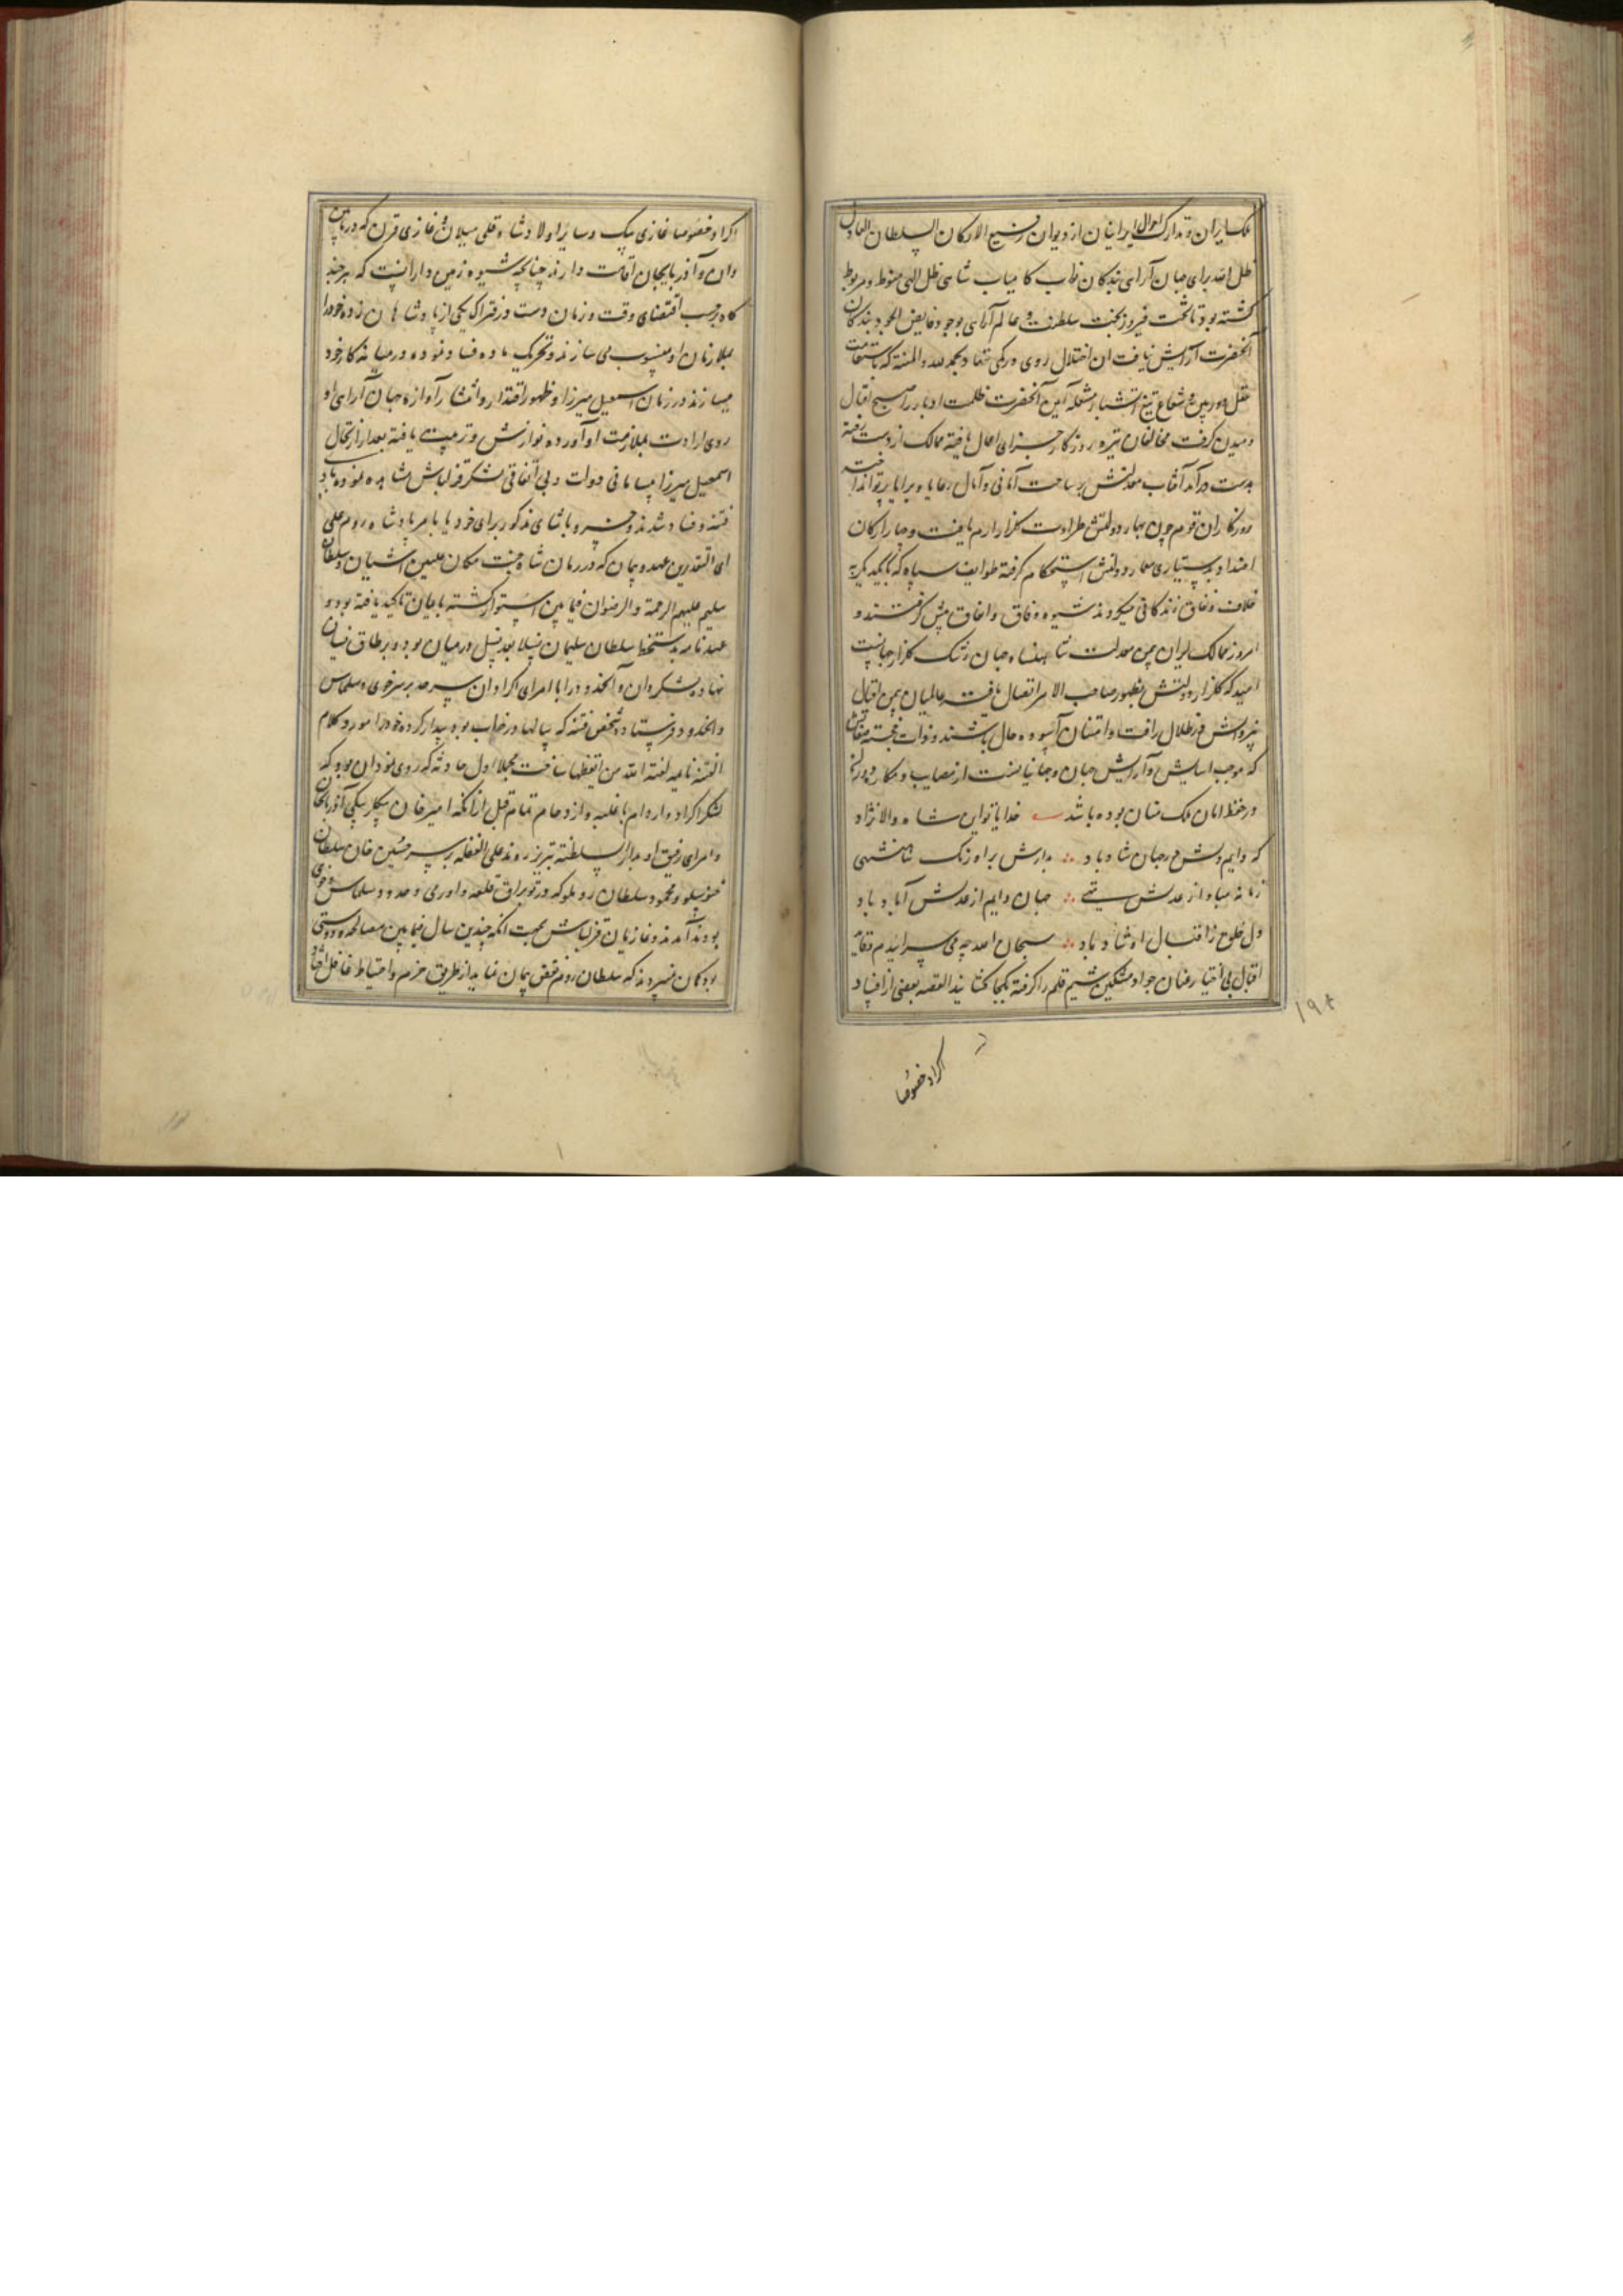 ملک ایران و تدارک احوال ایرانیان از دیوان رفیع الارکان السلطان العادل
ظل الله برای جهان آرای بندگان نواب کامیاب شاهی ظل الهی منوط و مربوط
گشته بود تا تخت فیروزبخت سلطنت و عالم آرای بوجود فایض الجود بندگان
آنحضرت آرایش نیافت ان اختلال روی در کمی ننهاد بحمد لله و المنه که باستقامت
عقل دوربین و شعاع تیغ آتشبار شعله آیین آنحضرت ظلمت ادبار را صبح اقبال
دمیدن گرفت مخالفان تیره روزگار جزای اعمال یافته ممالک از دست رفته
بدست درآمد آفتاب معدلتش بر ساحت آمانی و آمال رعایا و برایا پرتو انداخته
روزگاران قوم چون بهار دولتش طراوت گلزار ارم یافت و چهار ارکان
بدستیاری معمار دولتش استحکام گرفته طوایف سپاه که با یکدیگر به
خلاف و نفاق زندگانی میکردند شیوه وفاق و اتفاق پیش گرفتند و
امروز ممالک ایران بیمن معدلت شاهنشاه جهان رشک گلزار جنانست
امید که گلزار دولتش بظهور صاحب الامر اتصال یافته عالمیان بیمن اقبال
در ظلال رافت و امتنان آسوده حال باشند و ذات خجسته صفاتش
که موجب اسایش و آرایش جهان و جهانیانست از مصایب و مکاره دوران
در حفظ امان ملک منان بوده باشد خدایا تو این شاه والانژاد
که دایم دلش در جهان شاد باد بدارش بر اورنگ شاهنشهی
زمانه مبادا ز عدلش تهی جهان دایم از عدلش آباد باد
دل خلق ز اقبال او شاد باد سبحان الله چه می سرایم دقایق
اقبال بی اختیار عنان جواد مشکین شیم قلم را گرفته بکجا کشانید القصه بعضی از افساد
اکراد خصوصا
اکراد خصوصا غازی بیک و سایر اولاد شاه قلی بیلان و غازی قرن که در مابین
وان و آذربایجان اقامت دارند چنانچه شیوه زمین دارانست که هر چند
گاه بر حسب اقتضای وقت و زمان دست در فتراک یکی از پادشاهان زده خود را
بملازمان او منسوب می سازند و تحریک ماده فساد نموده در میانه کار خود
میسازند در زمان اسمعیل میرزا و ظهور اقتدار و انتشار آوازه جهان آرای او
روی ارادت بملازمت او آورده نوازش و تربیت یافته بعد از ارتحال
اسمعیل میرزا بسامانی دولت و بی اتفاقی لشکر قزلباش مشاهده نموده
فتنه و فساد شدند و خسرو پاشای مذکور برای خود یا بامر پادشاه روم علی
ای التقدیرین عهد و پیمان که در زمان شاه جنت مکان علیین آشیان و سلطان
سلیم علیهم الرحمة و الرضوان فیما بین استوار گشته بایمان تاکید یافته بود و
عهدنامه بدستخط سلطان سلیمان نسلا بعد نسل در میان بود بر طاق نسیان
نهاده لشکر وان و آنحدود را با امرای اکراد ان سرحد بر سر خوی و سلماس
و انحدود فرستاد و شخص فتنه که سالها در خواب بود بیدار کرده خود را مورد کلام
الفتنة نایمه لعنة الله من ایقظها ساخت مجملا اول حادثه که روی نمود ان بود که
لشکر اکراد و اروام با غلبه و ازدحام تمام قبل از آنکه امیر خان بیگلربیگی آذربایجان
و امرای رفیق او بدار السلطنه تبریز روند علی الغفله بر سر حسین خان سلطان
خنوسلو و محمود سلطان روملو که در توپراق قلعه و اورمی و حدود سلماس و خوی
بودند آمدند و غازیان قزلباش بجهت انکه چندین سال فیمابین مصالحه و دوستی
بود گمان نمیبردند که سلطان روم نقض پیمان نماید از طریق حزم و احتیاط غافل افتاد
۱۹۸